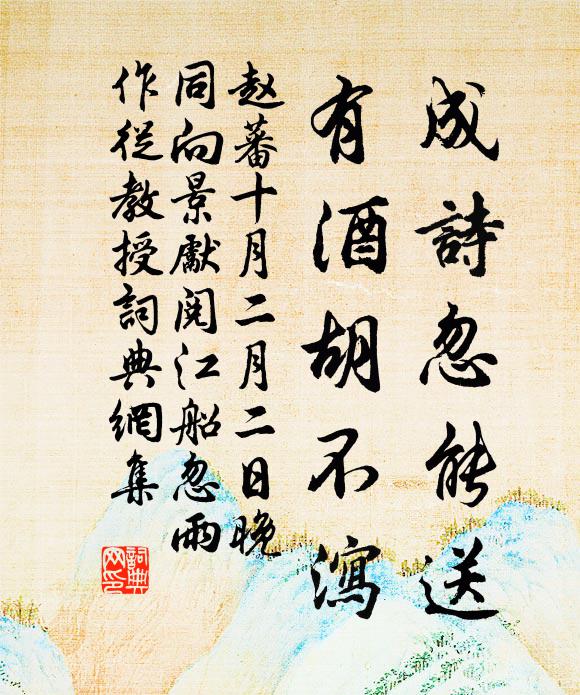 成詩忽能送
有酒胡不瀉
赵蕃十月二月二日晚
同向景獻閱江船忽雨
作從教授詞典網集
詞典
网印